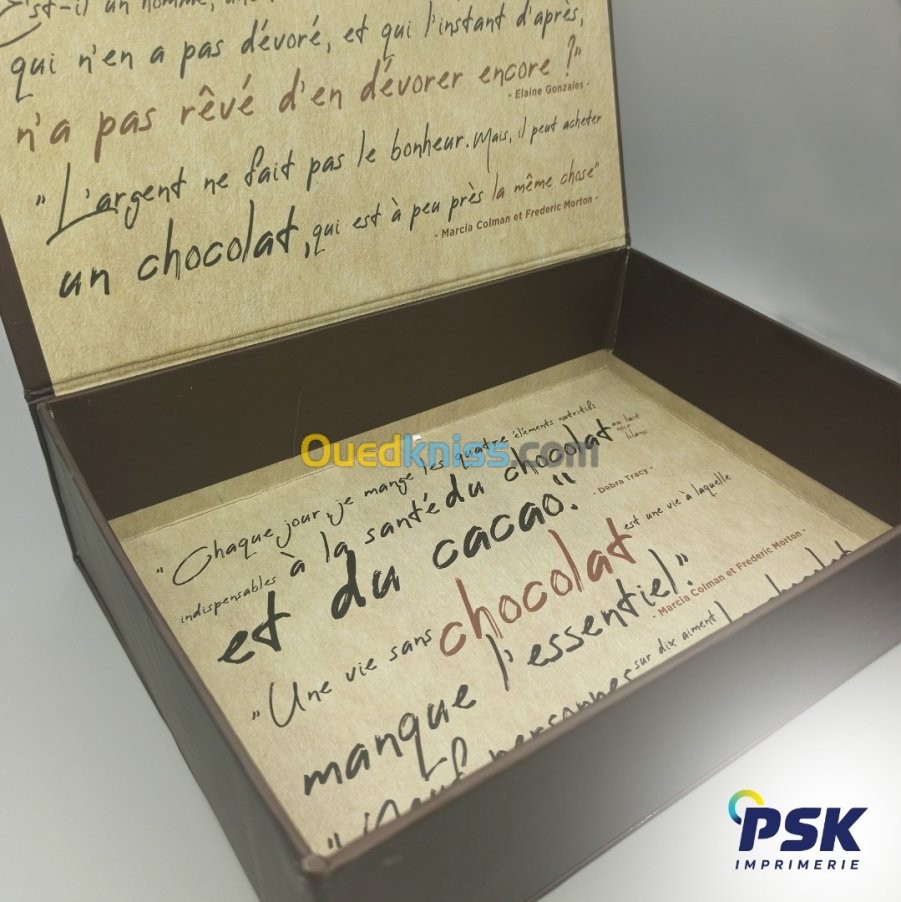 st-il un homme,
qui n'en a pas dévoré, et qui l'instant d'après,
n'a pas rêvé d'en dévorer encore ?"
- Elaine Gonzales -
"L'argent ne fait pas le bonheur. Mais, il peut acheter
un chocolat, qui est à peu près la même chose"
- Marcia Colman et Frederic Morton -
Ouedkniss.com
"Chaque jour, je mange les quatre éléments nutritifs
indispensables à la santé du chocolat au lait
noir
blanc
et du cacao."
- Debra Tracy -
"Une vie sans chocolat est une vie à laquelle
manque l'essentiel".
- Marcia Colman et Frederic Morton -
"Neuf personnes sur dix aiment
PSK
IMPRIMERIE